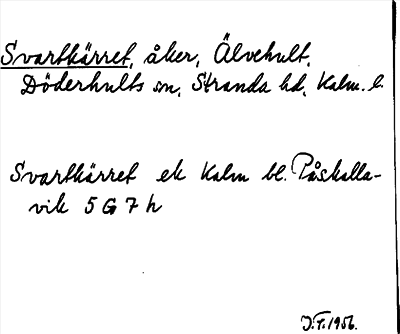 Svartkärret, åker, Älvehult,
Döderhults sn, Stranda hd, Kalm. l.
Svartkärret ek Kalm bl. Påskalla-
vik 5 G 7 h
J.F. 1956.